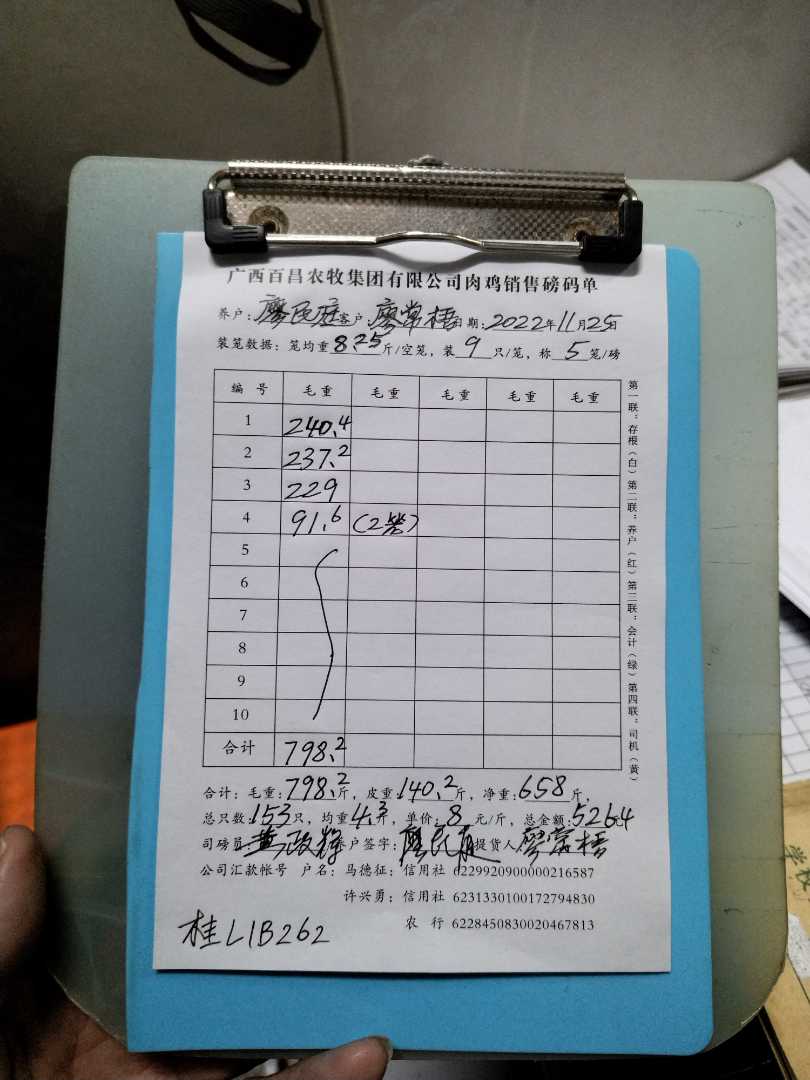 广西百昌农牧集团有限公司肉鸡销售磅码单
养户：廖民 客户：廖常梧 日期：2022年11月25日
装笼数据：笼均重8.25斤/空笼，装9只/笼，称5笼/磅
编号 毛重 毛重 毛重 毛重 毛重
1 240.4
2 237.2
3 229
4 91.6 (2笼)
5
6
7
8
9
10
合计 798.2
第一联：存根（白）第二联：养户（红）第三联：会计（绿）第四联：司机（黄）
合计：毛重：798.2斤，皮重140.2斤，净重：658斤，
总只数：153只，均重4.3斤，单价：8元/斤，总金额：5264
司磅员： 养户签字：廖民 提货人 廖常梧
公司汇款帐号 户名：马德征：信用社 6229920900000216587
许兴勇：信用社 6231330100172794830
农行 6228450830020467813
桂L1B262